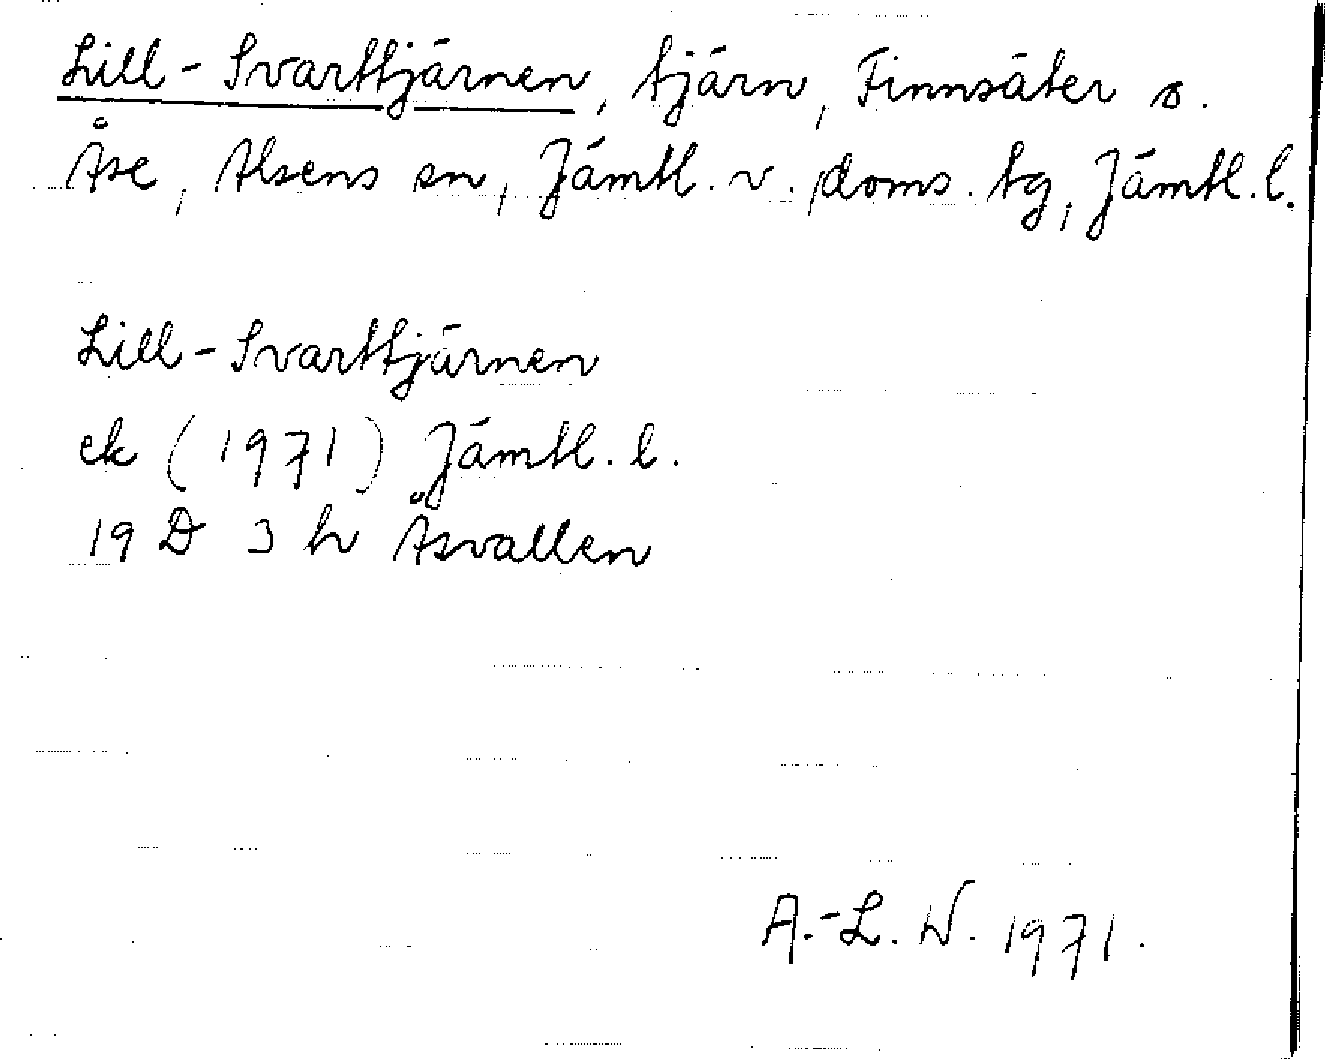 Lill-Svarttjärnen, tjärn, Finnsäter o.
Åse, Alsens sn, Jämtl. v. doms. tg, Jämtl. l.
Lill-Svarttjärnen
ek (1971) Jämtl. l.
19 D 3 h Åsvallen
A.-L. W. 1971.